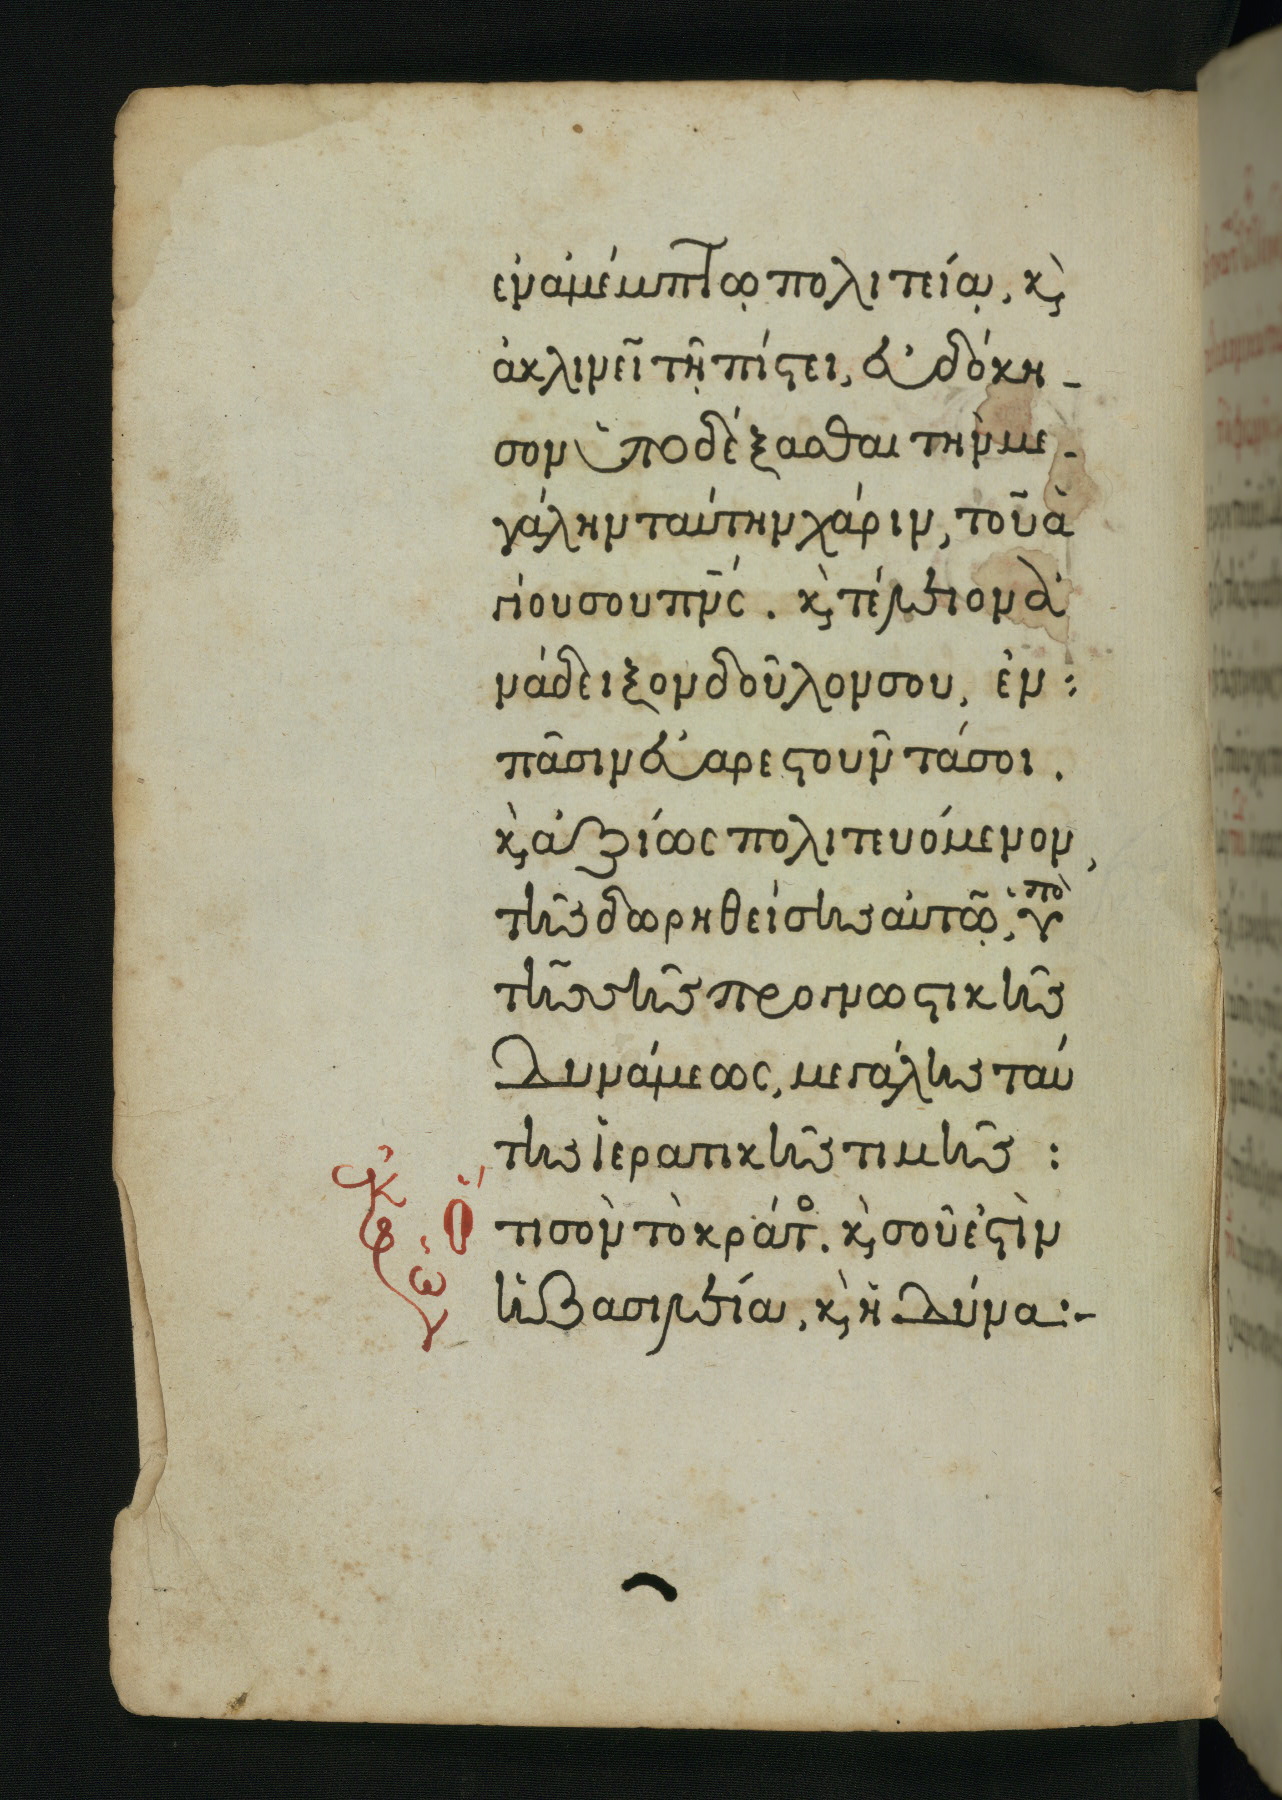 ἐν ἀμέμπτω πολιτεία, κ̀
ἀκλινεῖ τῆ πίστει, εὐδόκη -
σον ὑποδέξασθαι τὴν με -
γάλην ταύτην χάριν, τοῦ ἁ
γίου σου πν̅ς. κ̀ τέλειον ἀ
νάδειξον δοῦλον σου, ἐν :
πᾶσιν εὐαρεστοῦντά σοι.
κ̀ ἀξίως πολιτευόμενον,
τῆς δωρηθείσης αὐτῶ, ὑπὸ
τῆς σῆς προγνωστικῆς
Δυνάμεως, μεγάλης ταύ
της ἱερατικῆς τιμῆς :
Ὅτι σὸν τὸ κράτο. κ̀ σοῦ ἐστὶν
ἡ Βασιλεία, κ̀ ἡ Δύνα:-
ἐκφών